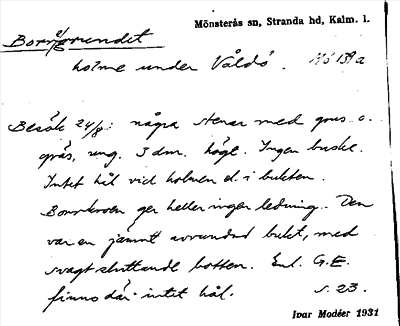 Mönsterås sn, Stranda hd, Kalm. l.
Borrgrundet
holme under Vållö. Mö 139a
Besök 24/8: några stenar med grus o.
gräs, ung. 3 dm. högt. Ingen buske.
Intet hål vid holmen el. i bukten.
ger heller ingen ledning. Den
var en jämnt avrundad bukt, med
svagt sluttande botten. Enl. G.E.
finns där intet hål. s. 23.
Ivar Modéer 1931